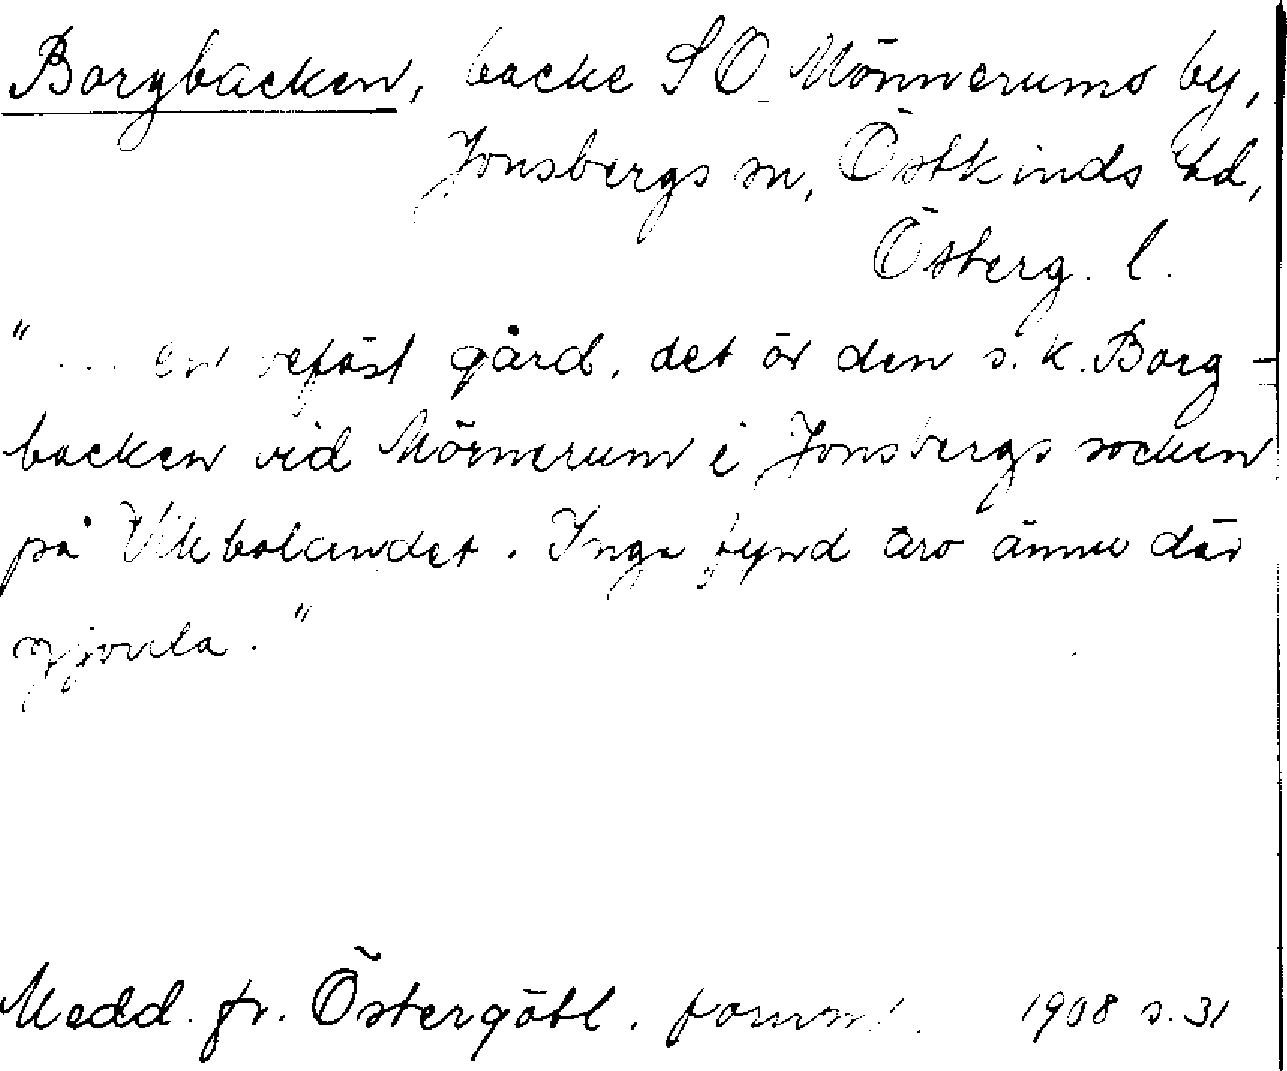 Borgbacken, backe SO Mönnerums by,
Jonsbergs sn, Östkinds hd,
Österg. l.
"... en befäst gård, det är den s.k. Borg-
backen vid Mörnerum i Jonsbergs socken
på Vikbolandet. Inga fynd äro ännu där
gjorda."
Medd. fr. Östergötl. fornm. 1908 s. 31